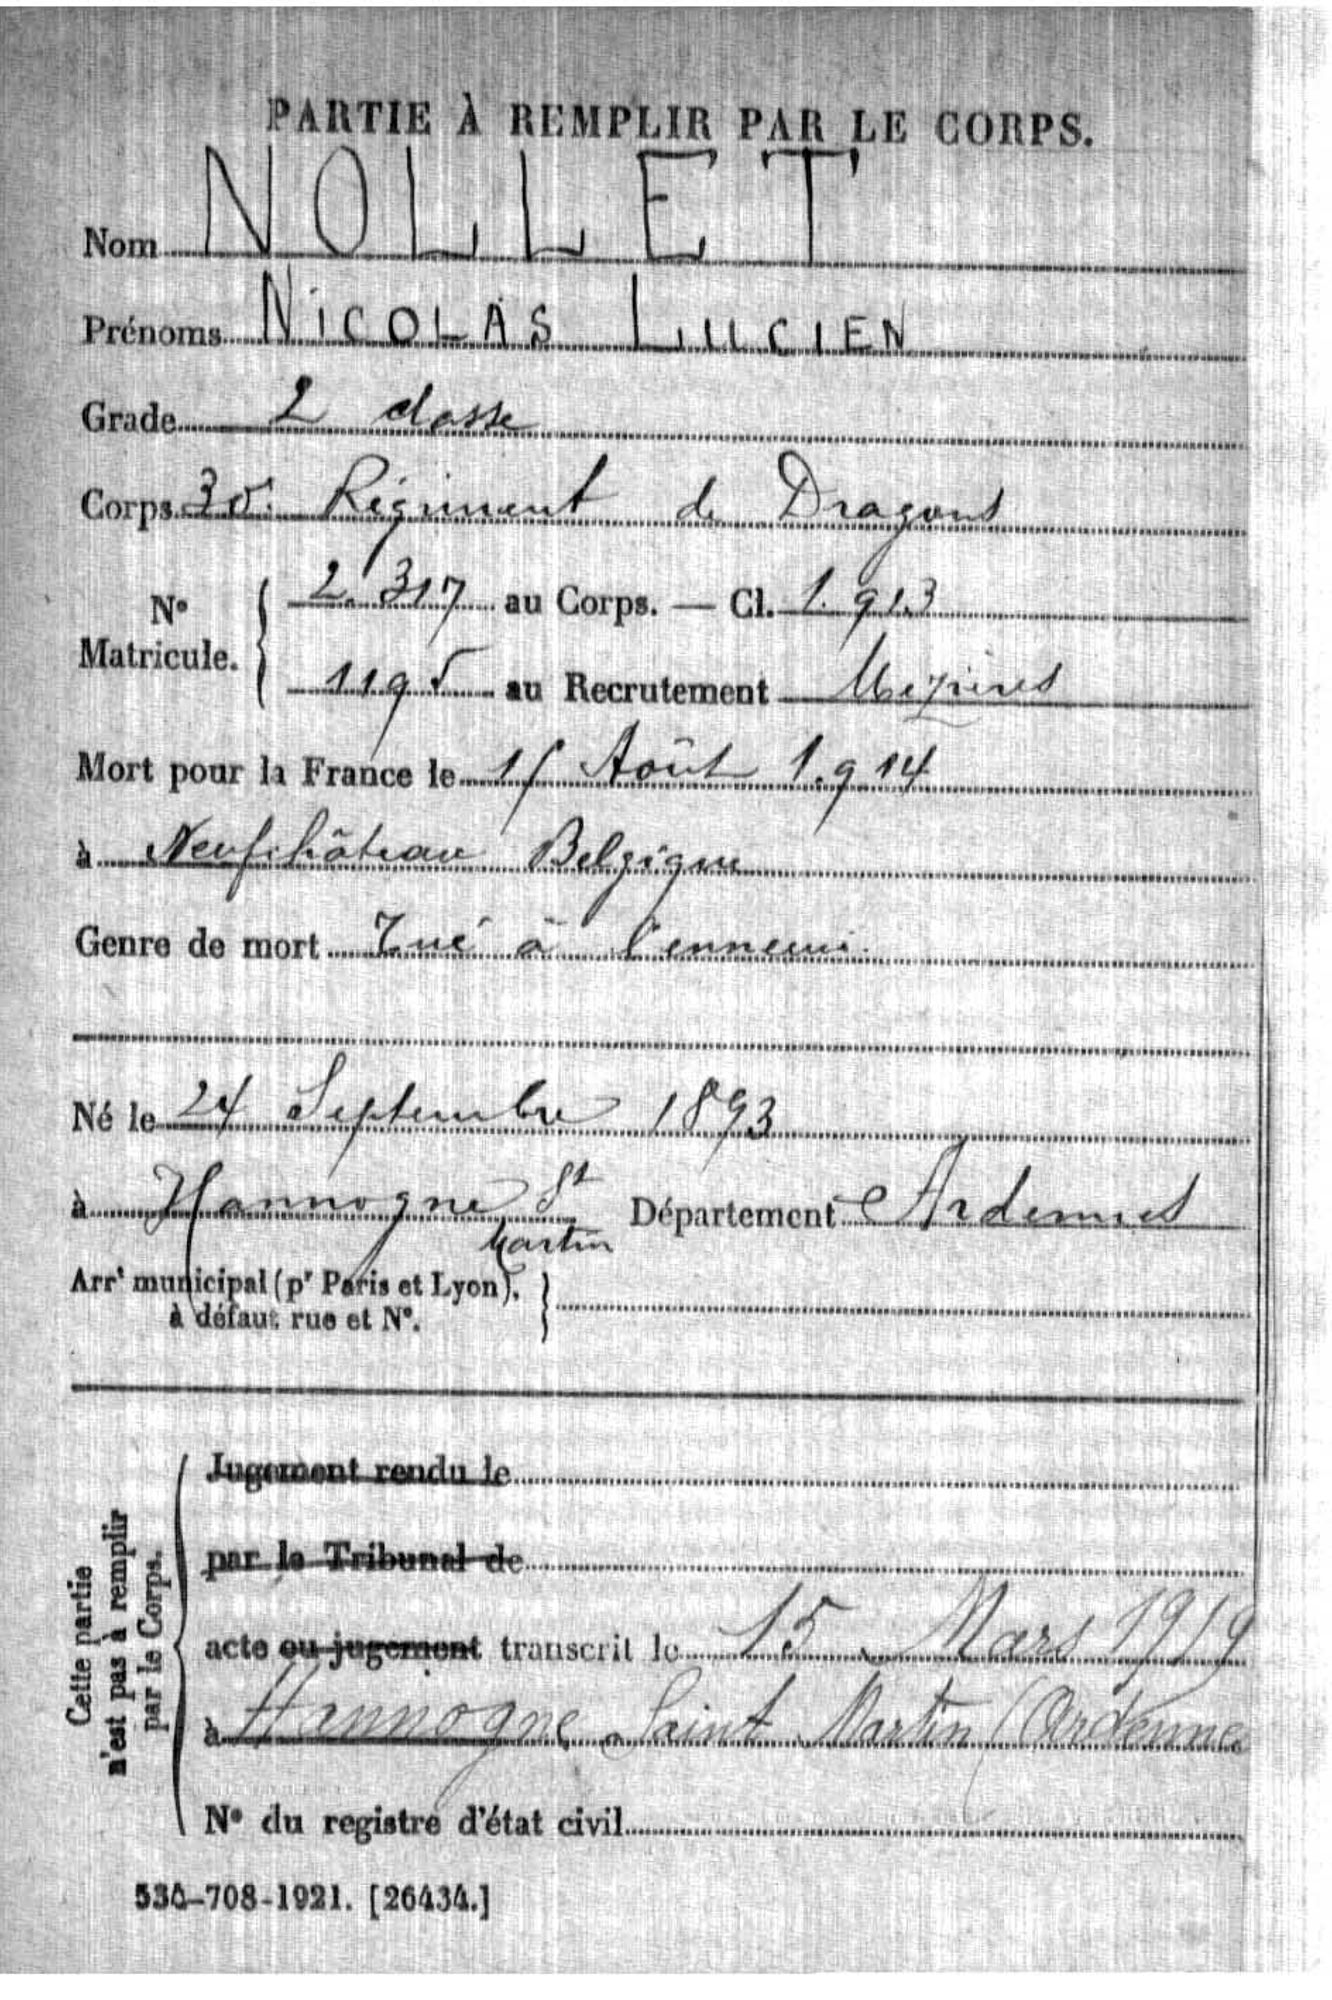 PARTIE À REMPLIR PAR LE CORPS.
Nom NOLLET
Prénoms NICOLAS LUCIEN
Grade 2 classe
Corps 30. Régiment de Dragons
N° Matricule. 2.317 au Corps. — Cl. 1.913
1195 au Recrutement Mézières
Mort pour la France le Août 1.914
à Neufchâteau Belgique
Genre de mort Tué à l'ennemi.
Né le 24 Septembre 1893
à Hannogne St Martin Département Ardennes
Arrt municipal (pr Paris et Lyon),
à défaut rue et N°.
Cette partie
n'est pas à remplir
par le Corps.
Jugement rendu le
par le Tribunal de
acte ou jugement transcrit le 15 Mars 1919
à Hannogne Saint Martin (Ardenne
N° du registre d'état civil
534-708-1921. [26434.]